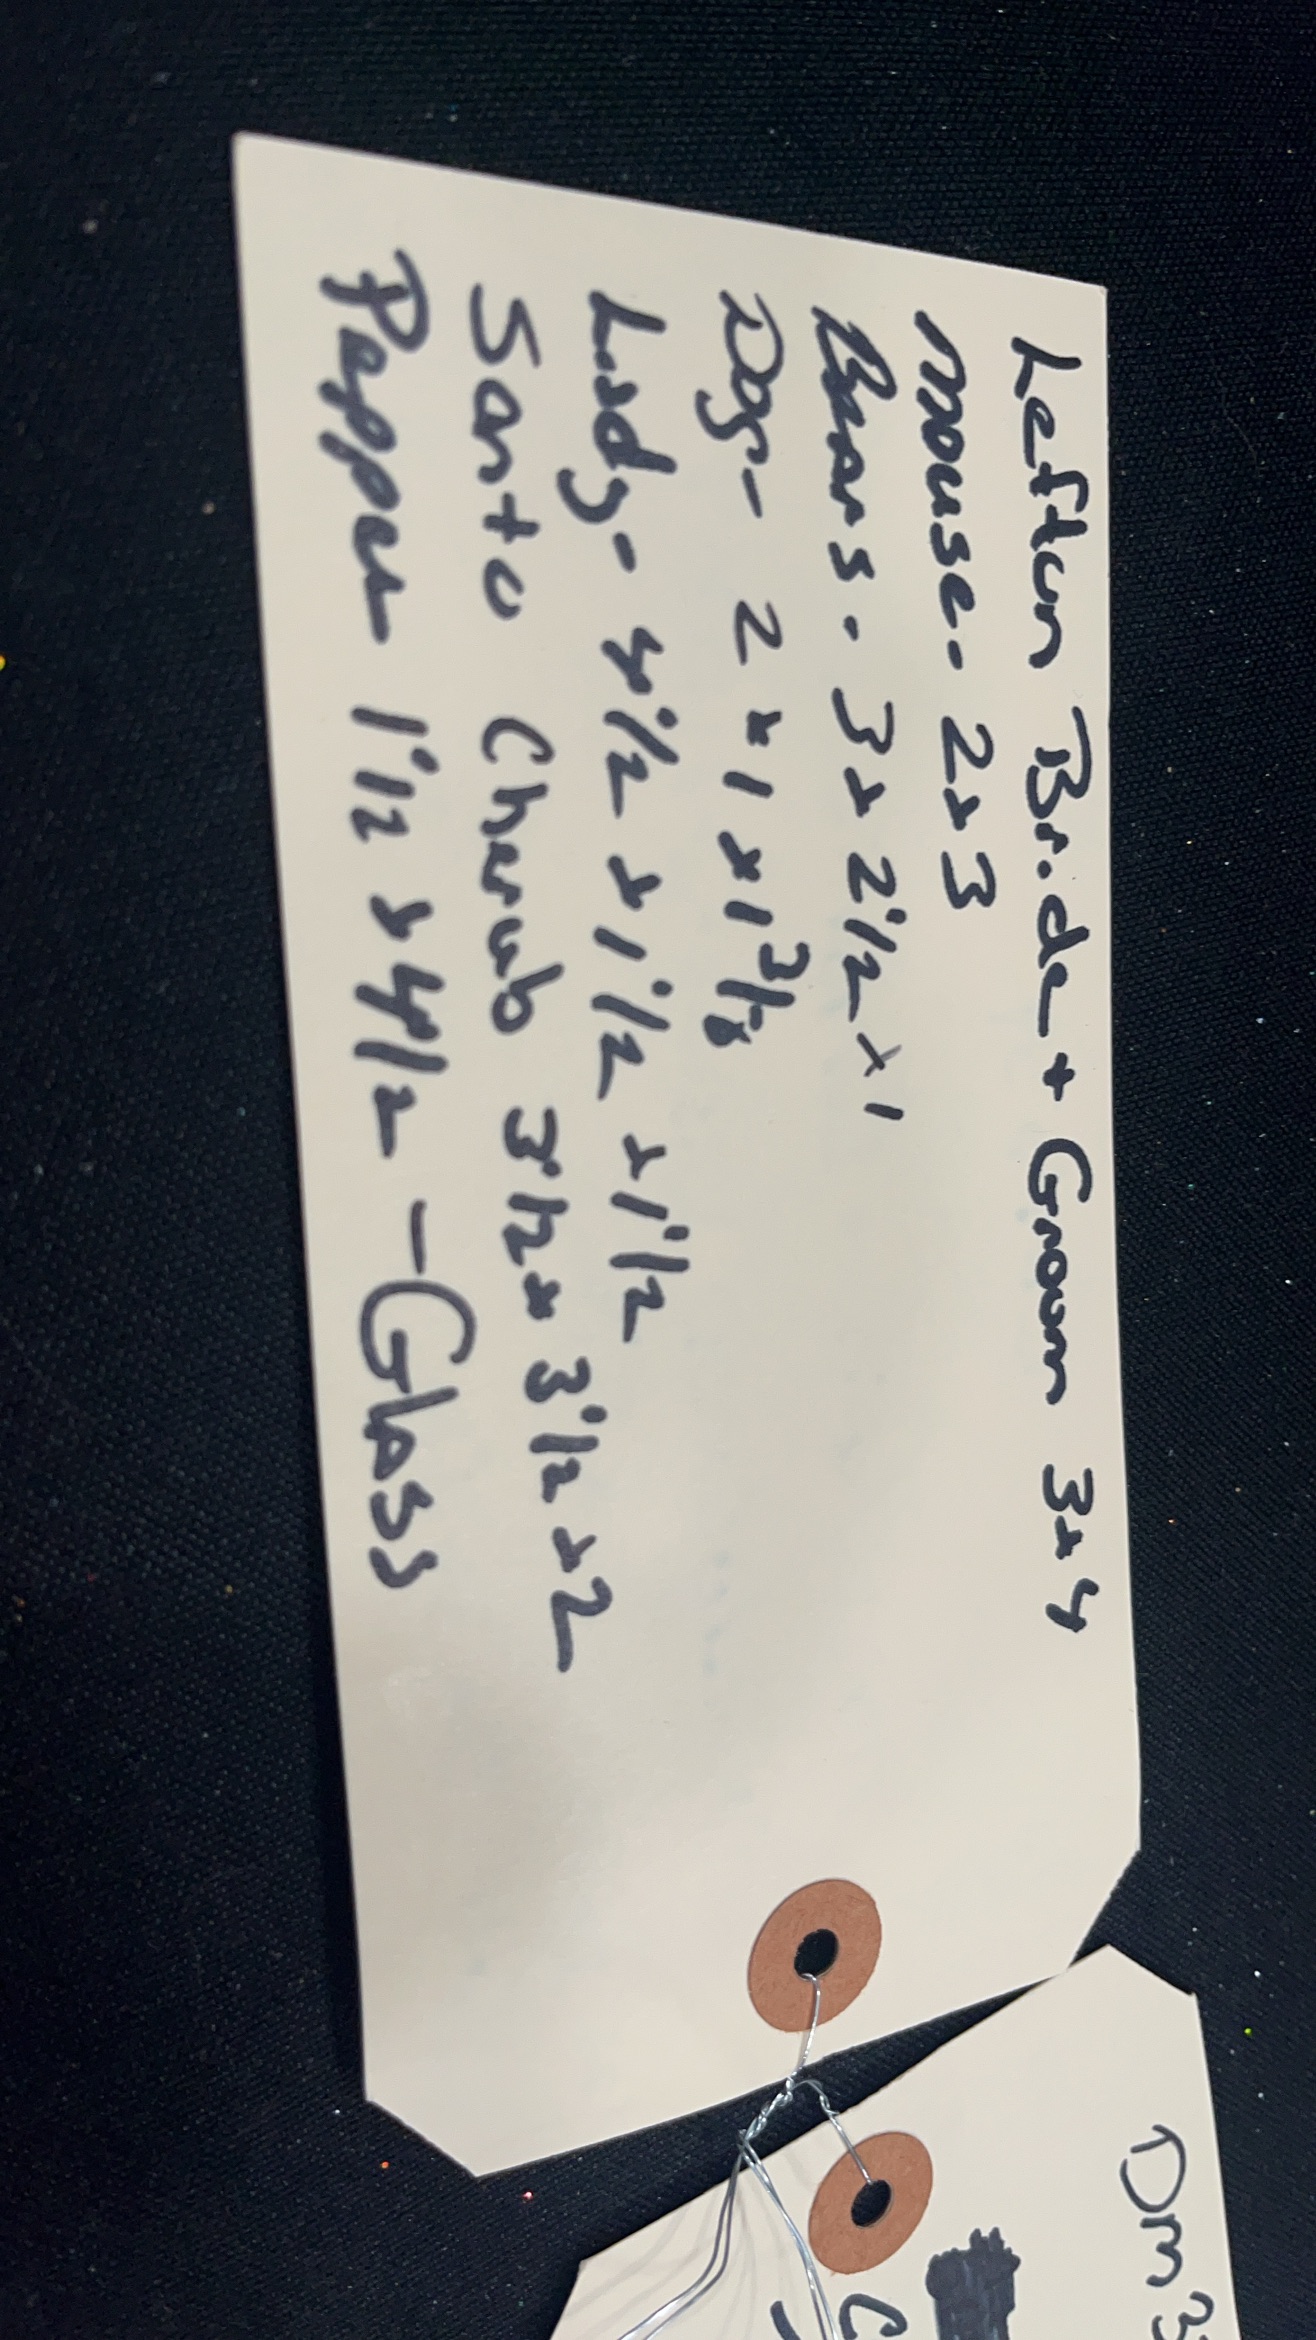 Lefton Bride + Groom 3x4
mouse - 2x3
Bears - 3x2 1/2 x 1
Dog - 2 x 1 x 1 3/8
Lady - 4 1/2 x 1 1/2 x 1 1/2
Santo Cherub 3 1/2 x 3 1/2 x 2
Pepper 1 1/2 x 4 1/2 - Glass
Dm 3